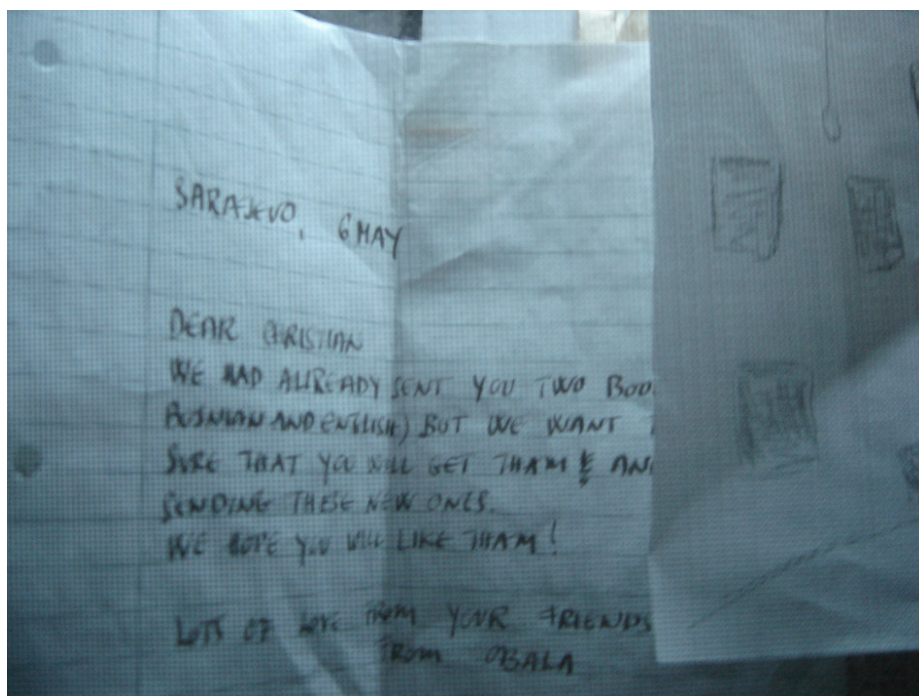 SARAJEVO, 6 MAY
DEAR CHRISTIAN
WE HAD ALREADY SENT YOU TWO BOO
BOSNIAN AND ENGLISH) BUT WE WANT
SURE THAT YOU WILL GET THAM & AN
SENDING THESE NEW ONES.
WE HOPE YOU WILL LIKE THAM!
LOTS OF LOVE FROM YOUR FRIENDS
FROM OBALA